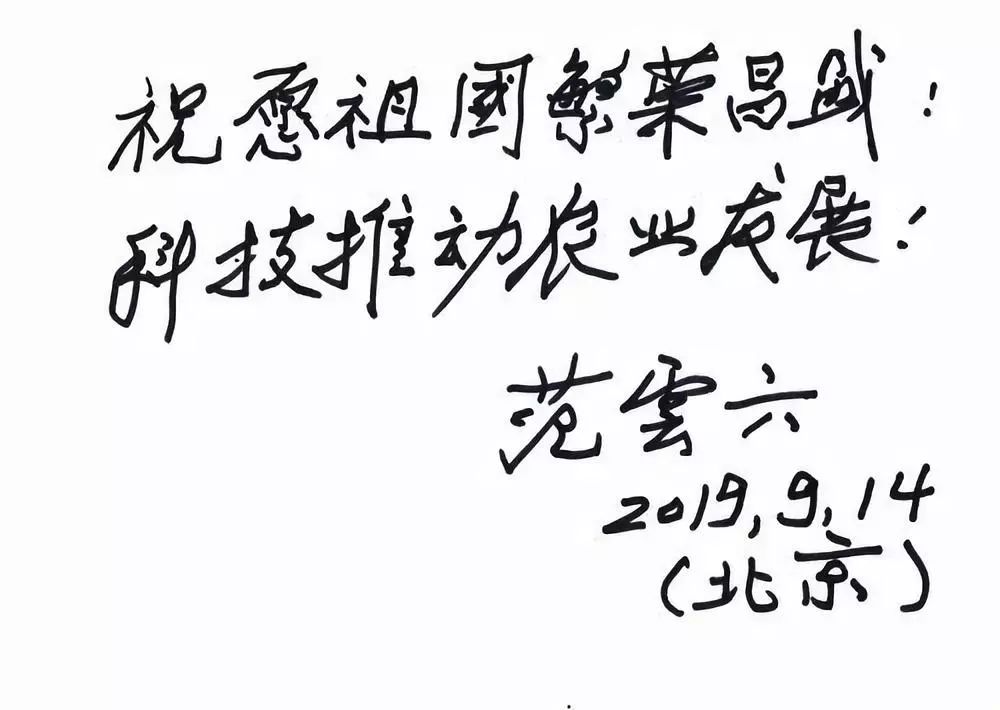 祝愿祖國繁荣昌盛！
科技推动农业发展！
范雲六
2019.9.14
（北京）